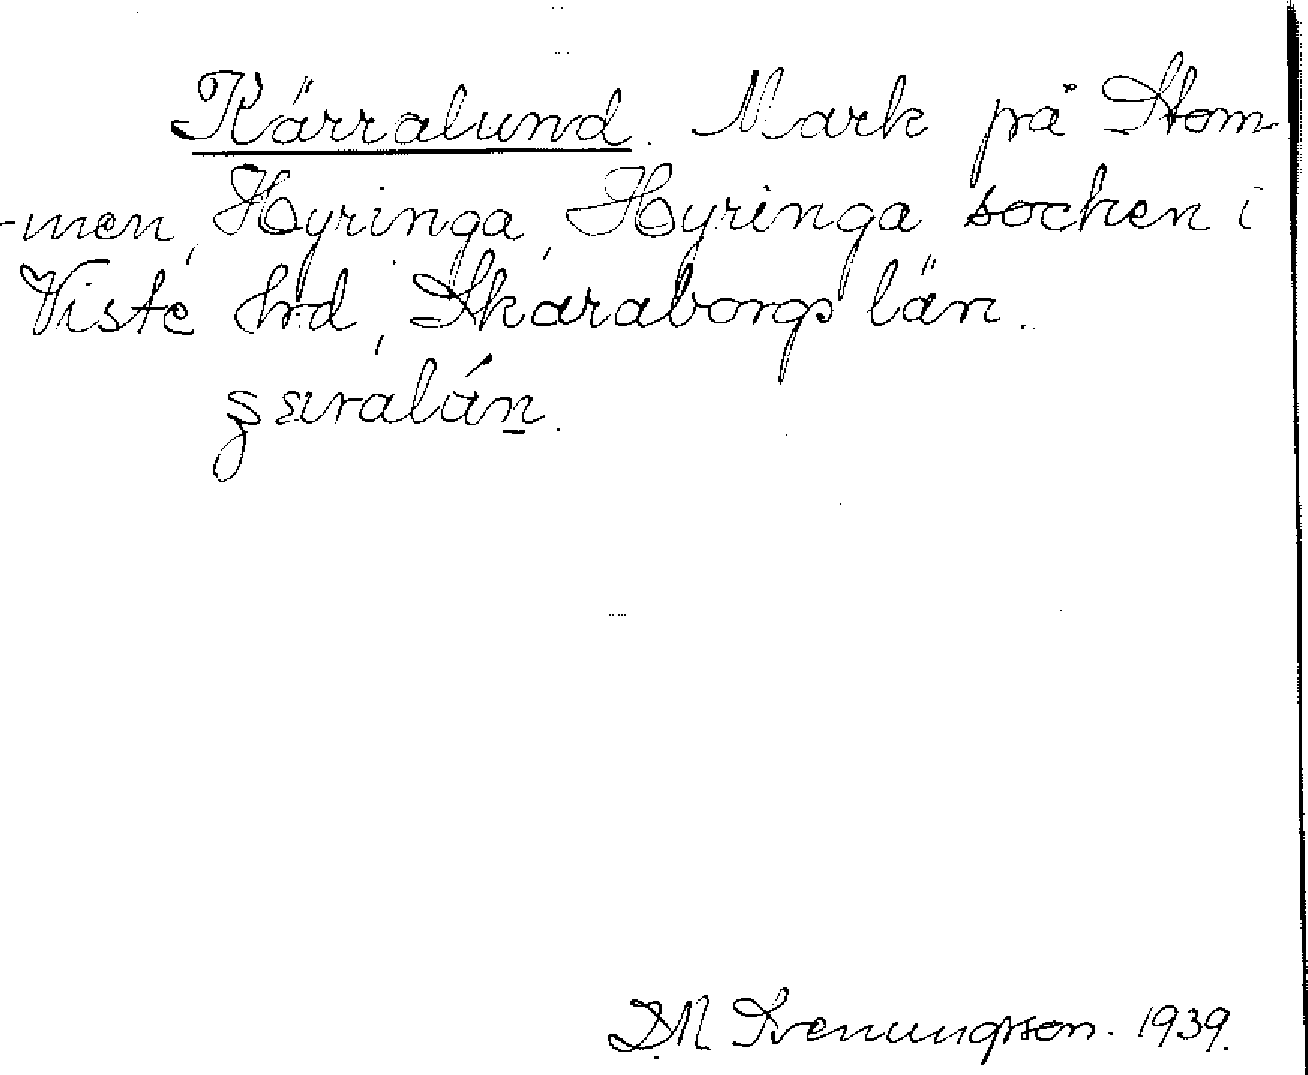 Kärralund. Mark på Stom
-men, Hyringa, Hyringa socken i
Viste hrd, Skaraborgs län.
D.M Svenungsson. 1939.